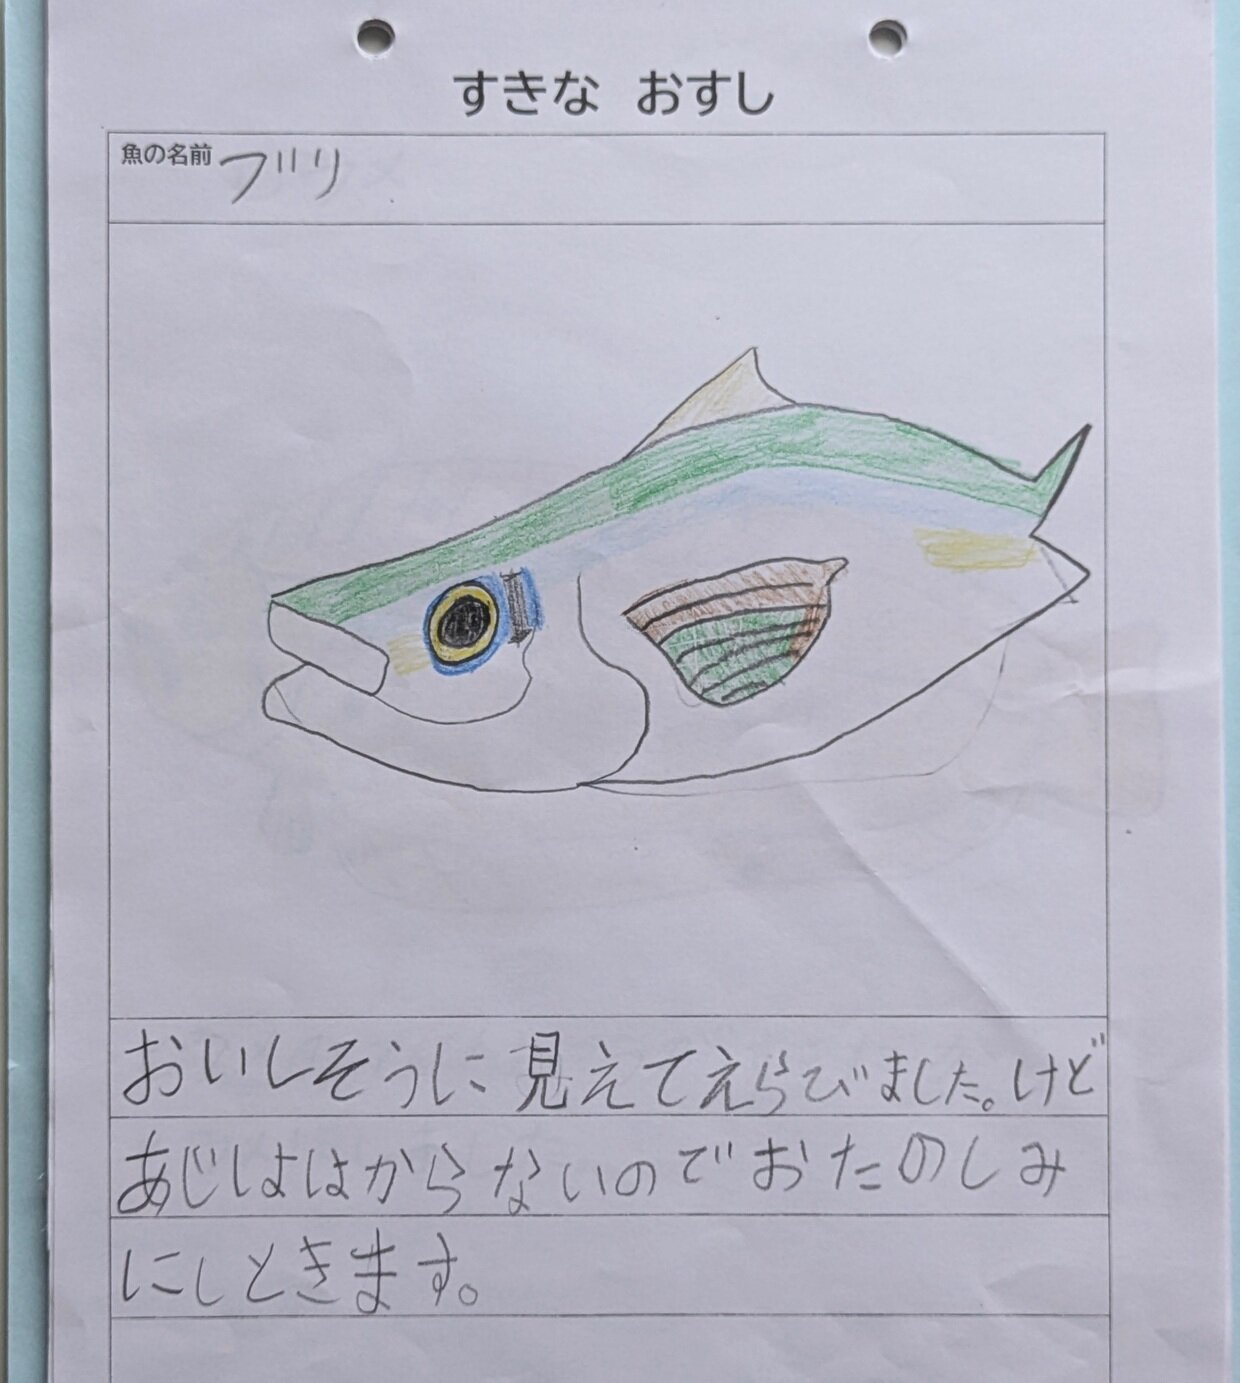 すきな おすし
魚の名前 ブリ
おいしそうに見えてえらびました。けど
あじしははからないのでおたのしみ
にしときます。